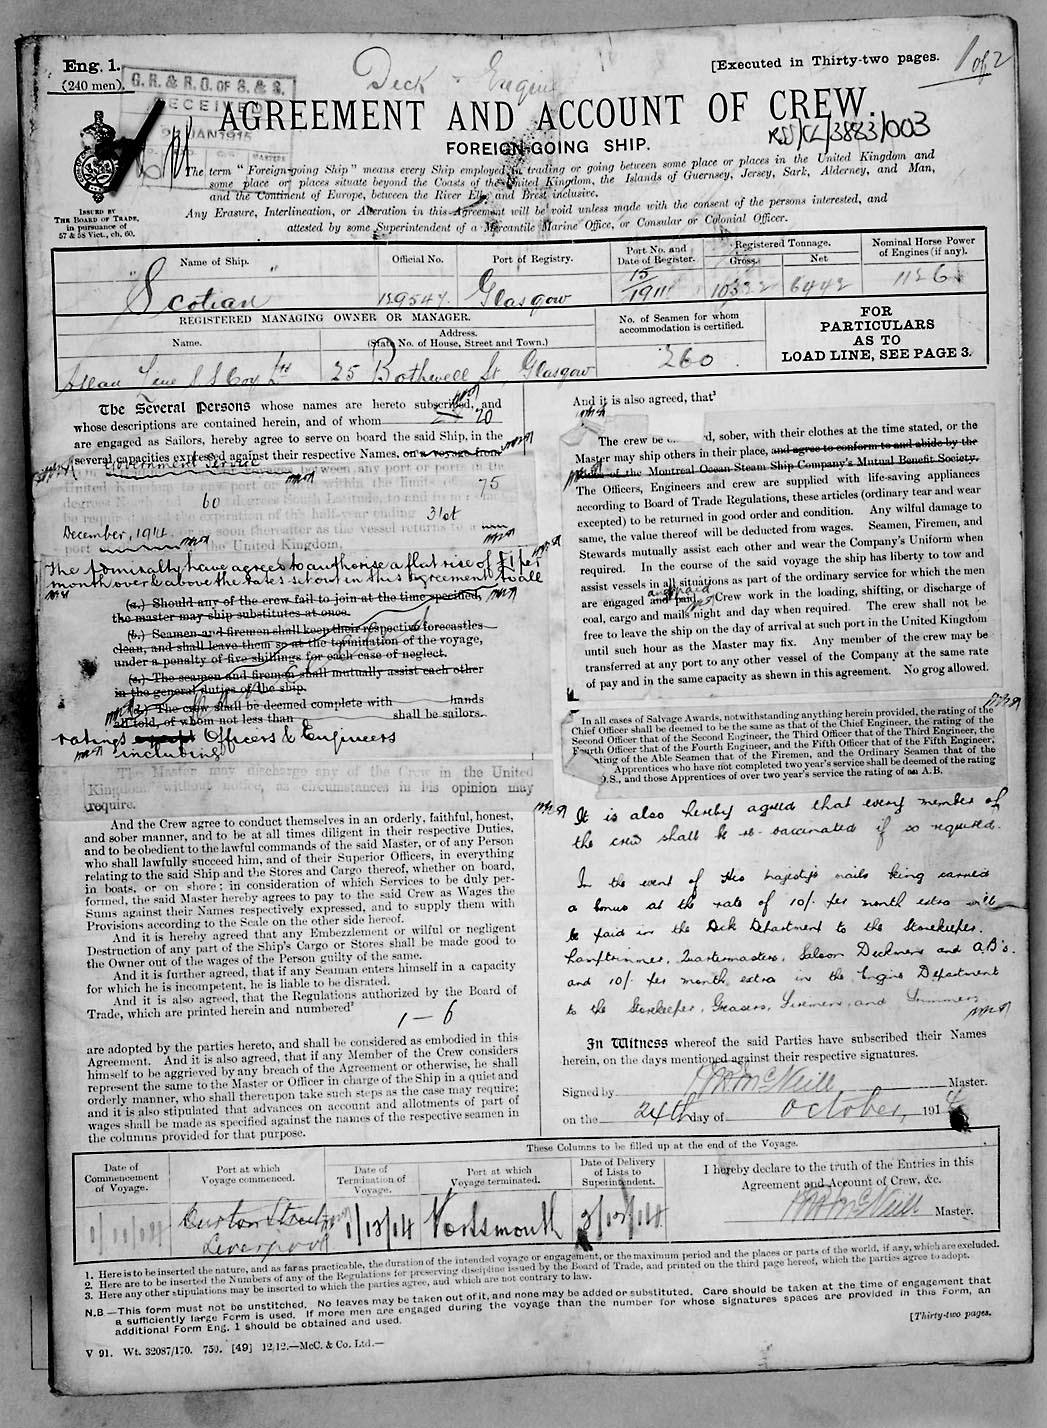 Eng. 1.
(240 men).
G. R. & R. O. OF S. & S.
RECEIVED
JAN 1915
Deck Engine
[Executed in Thirty-two pages.
1 of 2
AGREEMENT AND ACCOUNT OF CREW.
FOREIGN-GOING SHIP.
ISSUED BY
THE BOARD OF TRADE,
in pursuance of
57 & 58 Vict., ch. 60.
The term "Foreign-going Ship" means every Ship employed in trading or going between some place or places in the United Kingdom and
some place or places situate beyond the Coasts of the United Kingdom, the Islands of Guernsey, Jersey, Sark, Alderney, and Man,
and the Continent of Europe, between the River Elbe and Brest inclusive.
Any Erasure, Interlineation, or Alteration in this Agreement will be void unless made with the consent of the persons interested, and
attested by some Superintendent of a Mercantile Marine Office, or Consular or Colonial Officer.
Name of Ship. Official No. Port of Registry. Port No. and Date of Register. Registered Tonnage. Gross. Net Nominal Horse Power of Engines (if any).
"Scotian" 129547. Glasgow 15/1911 10322 6442 1126
REGISTERED MANAGING OWNER OR MANAGER.
Name. Address. (State No. of House, Street and Town.)
No. of Seamen for whom accommodation is certified.
FOR
PARTICULARS
AS TO
LOAD LINE, SEE PAGE 3.
Allan Line S S Coy Ltd 25 Bothwell St, Glasgow 260
The Several Persons whose names are hereto subscribed, and
whose descriptions are contained herein, and of whom 20
are engaged as Sailors, hereby agree to serve on board the said Ship, in the
several capacities expressed against their respective Names, on a voyage from
Government Service
75
60
31st
December, 1914
port the United Kingdom.
The Admiralty have agreed to authorise a flat rise of £1 per
month over & above the rates set out in this Agreement to all
(a.) Should any of the crew fail to join at the time specified,
the master may ship substitutes at once.
(b.) Seamen and firemen shall keep their respective forecastles
clean, and shall leave them so at the termination of the voyage,
under a penalty of five shillings for each case of neglect.
(c.) The seamen and firemen shall mutually assist each other
in the general duties of the ship.
(d.) The crew shall be deemed complete with hands
all told, of whom not less than shall be sailors.
ratings except Officers & Engineers
including
The Master may discharge any of the Crew in the United
Kingdom without notice, as circumstances in his opinion may
require.
And the Crew agree to conduct themselves in an orderly, faithful, honest,
and sober manner, and to be at all times diligent in their respective Duties,
and to be obedient to the lawful commands of the said Master, or of any Person
who shall lawfully succeed him, and of their Superior Officers, in everything
relating to the said Ship and the Stores and Cargo thereof, whether on board,
in boats, or on shore; in consideration of which Services to be duly per-
formed, the said Master hereby agrees to pay to the said Crew as Wages the
Sums against their Names respectively expressed, and to supply them with
Provisions according to the Scale on the other side hereof.
And it is hereby agreed that any Embezzlement or wilful or negligent
Destruction of any part of the Ship's Cargo or Stores shall be made good to
the Owner out of the wages of the Person guilty of the same.
And it is further agreed, that if any Seaman enters himself in a capacity
for which he is incompetent, he is liable to be disrated.
And it is also agreed, that the Regulations authorized by the Board of
Trade, which are printed herein and numbered²
1 – 6
are adopted by the parties hereto, and shall be considered as embodied in this
Agreement. And it is also agreed, that if any Member of the Crew considers
himself to be aggrieved by any breach of the Agreement or otherwise, he shall
represent the same to the Master or Officer in charge of the Ship in a quiet and
orderly manner, who shall thereupon take such steps as the case may require;
and it is also stipulated that advances on account and allotments of part of
wages shall be made as specified against the names of the respective seamen in
the columns provided for that purpose.
And it is also agreed, that³
The crew be sober, with their clothes at the time stated, or the
Master may ship others in their place, and agree to conform to and abide by the
Rules of the Montreal Ocean Steam Ship Company's Mutual Benefit Society.
The Officers, Engineers and crew are supplied with life-saving appliances
according to Board of Trade Regulations, these articles (ordinary tear and wear
excepted) to be returned in good order and condition. Any wilful damage to
same, the value thereof will be deducted from wages. Seamen, Firemen, and
Stewards mutually assist each other and wear the Company's Uniform when
required. In the course of the said voyage the ship has liberty to tow and
assist vessels in all situations as part of the ordinary service for which the men
are engaged and paid. Crew work in the loading, shifting, or discharge of
coal, cargo and mails night and day when required. The crew shall not be
free to leave the ship on the day of arrival at such port in the United Kingdom
until such hour as the Master may fix. Any member of the crew may be
transferred at any port to any other vessel of the Company at the same rate
of pay and in the same capacity as shewn in this agreement. No grog allowed.
In all cases of Salvage Awards, notwithstanding anything herein provided, the rating of the
Chief Officer shall be deemed to be the same as that of the Chief Engineer, the rating of the
Second Officer that of the Second Engineer, the Third Officer that of the Third Engineer, the
Fourth Officer that of the Fourth Engineer, and the Fifth Officer that of the Fifth Engineer,
rating of the Able Seamen that of the Firemen, and the Ordinary Seamen that of the
Apprentices who have not completed two year's service shall be deemed of the rating
O.S., and those Apprentices of over two year's service the rating of an A.B.
It is also hereby agreed that every member of
the crew shall be re-vaccinated if so required.
In the event of His Majesty's mails being carried
a bonus at the rate of 10/- per month extra will
be paid in the Deck Department to the Storekeeper.
Lamptrimmer, Quartermasters, Saloon Deckmen and A.B's.
and 10/- per month extra in the Engine Department
to the Storekeeper, Greasers, Firemen, and Trimmers.
In Witness whereof the said Parties have subscribed their Names
herein, on the days mentioned against their respective signatures.
Signed by McNeill Master.
on the 24th day of October, 1914
These Columns to be filled up at the end of the Voyage.
Date of Commencement of Voyage. Port at which Voyage commenced. Date of Termination of Voyage. Port at which Voyage terminated. Date of Delivery of Lists to Superintendent.
I hereby declare to the truth of the Entries in this
Agreement and Account of Crew, &c.
Liverpool 1/12/14 Portsmouth 3/12/14
McNeill Master.
1. Here is to be inserted the nature, and as far as practicable, the duration of the intended voyage or engagement, or the maximum period and the places or parts of the world, if any, which are excluded.
2. Here are to be inserted the Numbers of any of the Regulations for preserving discipline issued by the Board of Trade, and printed on the third page hereof, which the parties agree to adopt.
3. Here any other stipulations may be inserted to which the parties agree, and which are not contrary to law.
N.B—This form must not be unstitched. No leaves may be taken out of it, and none may be added or substituted. Care should be taken at the time of engagement that
a sufficiently large Form is used. If more men are engaged during the voyage than the number for whose signatures spaces are provided in this Form, an
additional Form Eng. 1 should be obtained and used.
[Thirty-two pages.
V 91. Wt. 32087/170. 750. [49] 12/12.—McC. & Co. Ltd.—